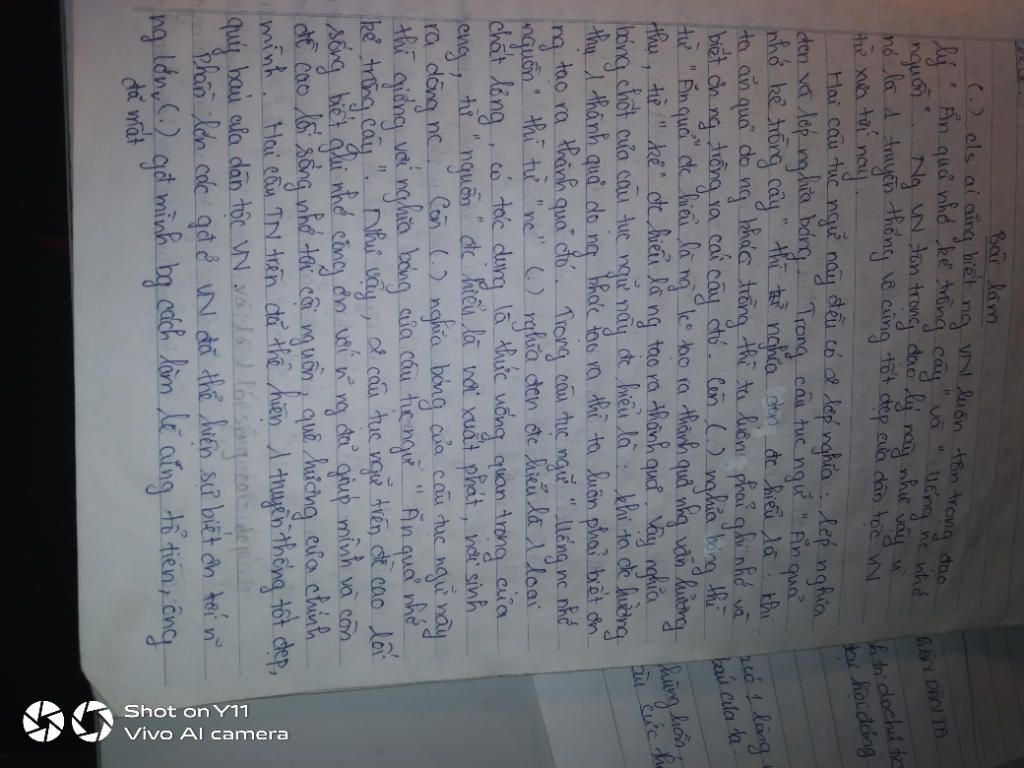 Bài làm
(.) c/s ai cũng biết ng VN luôn tôn trọng đạo
lý "Ăn quả nhớ kẻ trồng cây" và "Uống nc nhớ
nguồn". Ng VN tôn trọng đạo lý này như vậy vì
nó là 1 truyền thống vô cùng tốt đẹp của dân tộc VN
từ xưa tới nay.
Hai câu tục ngữ này đều có 2 lớp nghĩa: lớp nghĩa
đen và lớp nghĩa bóng. Trong câu tục ngữ "Ăn quả
nhớ kẻ trồng cây" thì nghĩa đen đc hiểu là: khi
ta ăn quả do ng khác trồng thì ta luôn phải ghi nhớ và
biết ơn ng trồng ra cái cây đó. Còn (.) nghĩa bóng thì
từ "Ăn quả" đc hiểu là ng ko tạo ra thành quả nhg vẫn hưởng
thụ, từ "kẻ" đc hiểu là ng tạo ra thành quả. Vậy nghĩa
bóng chốt của câu tục ngữ này đc hiểu là: khi ta đc hưởng
thụ 1 thành quả do ng khác tạo ra thì ta luôn phải biết ơn
ng tạo ra thành quả đó. Trong câu tục ngữ "Uống nc nhớ
nguồn" thì từ "nc" (.) nghĩa đen đc hiểu là 1 loại
chất lỏng, có tác dụng là thức uống quan trọng của
cng, từ "nguồn" đc hiểu là nơi xuất phát, nơi sinh
ra dòng nc. Còn (.) nghĩa bóng của câu tục ngữ này
thì giống với nghĩa bóng của câu tục ngữ "Ăn quả nhớ
kẻ trồng cây". Như vậy, 2 câu tục ngữ trên đề cao lối
sống biết ghi nhớ công ơn với n~ ng đã giúp mình và còn
đề cao lối sống nhớ tới cội nguồn, quê hương của chính
mình. Hai câu TN trên đã thể hiện 1 truyền thống tốt đẹp,
quý báu của dân tộc VN
Phần lớn các gđ ở VN đã thể hiện sự biết ơn tới n~
ng lớn (.) gđ mình bg cách làm lễ cúng tổ tiên, ông
đã mất
Shot on Y11
Vivo AI camera